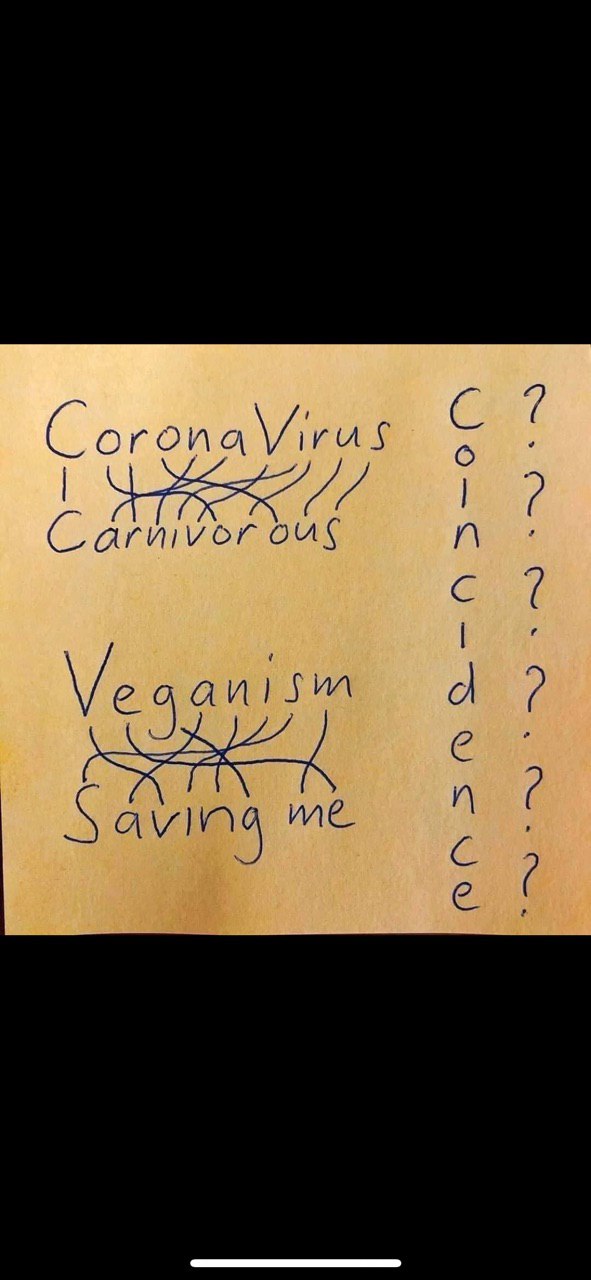 CoronaVirus
Carnivorous
Veganism
Saving me
Coincidence
? ? ? ? ? ?